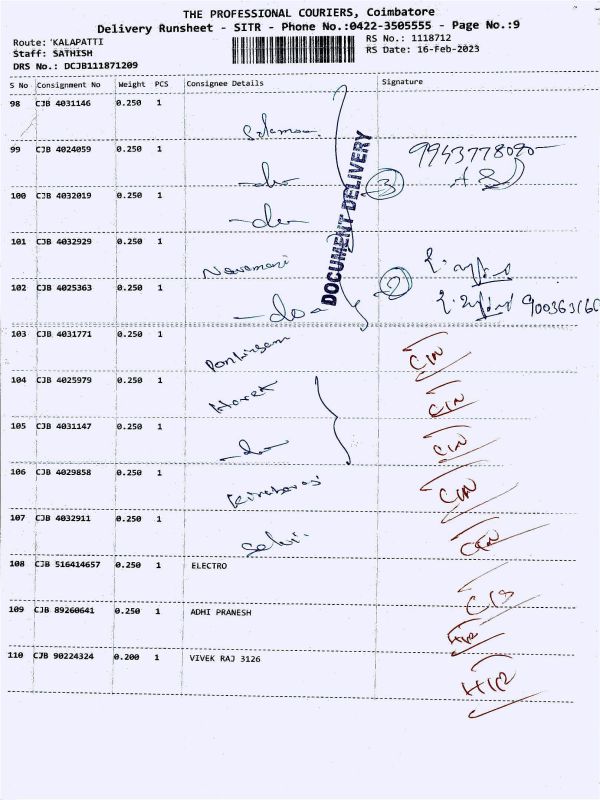 THE PROFESSIONAL COURIERS, Coimbatore
Delivery Runsheet - SITR - Phone No.:0422-3505555 - Page No.:9
Route: 'KALAPATTI
RS No.: 1118712
Staff: SATHISH
RS Date: 16-Feb-2023
DRS No.: DCJB111871209
S No Consignment No Weight PCS Consignee Details Signature
98 CJB 4031146 0.250 1
99 CJB 4024059 0.250 1 -do- 9943778090
100 CJB 4032019 0.250 1 -do- 3
101 CJB 4032929 0.250 1
DOCUMENT DELIVERY
102 CJB 4025363 0.250 1 -do- 2
103 CJB 4031771 0.250 1 CIN
104 CJB 4025979 0.250 1 CIN
105 CJB 4031147 0.250 1 -do- CIN
106 CJB 4029858 0.250 1 CIN
107 CJB 4032911 0.250 1 Selvi CIN
108 CJB 516414657 0.250 1 ELECTRO
109 CJB 89260641 0.250 1 ADHI PRANESH
110 CJB 90224324 0.200 1 VIVEK RAJ 3126